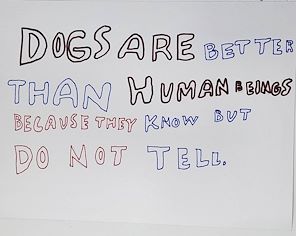 DOGS ARE BETTER
THAN HUMAN BEINGS
BECAUSE THEY KNOW BUT
DO NOT TELL.